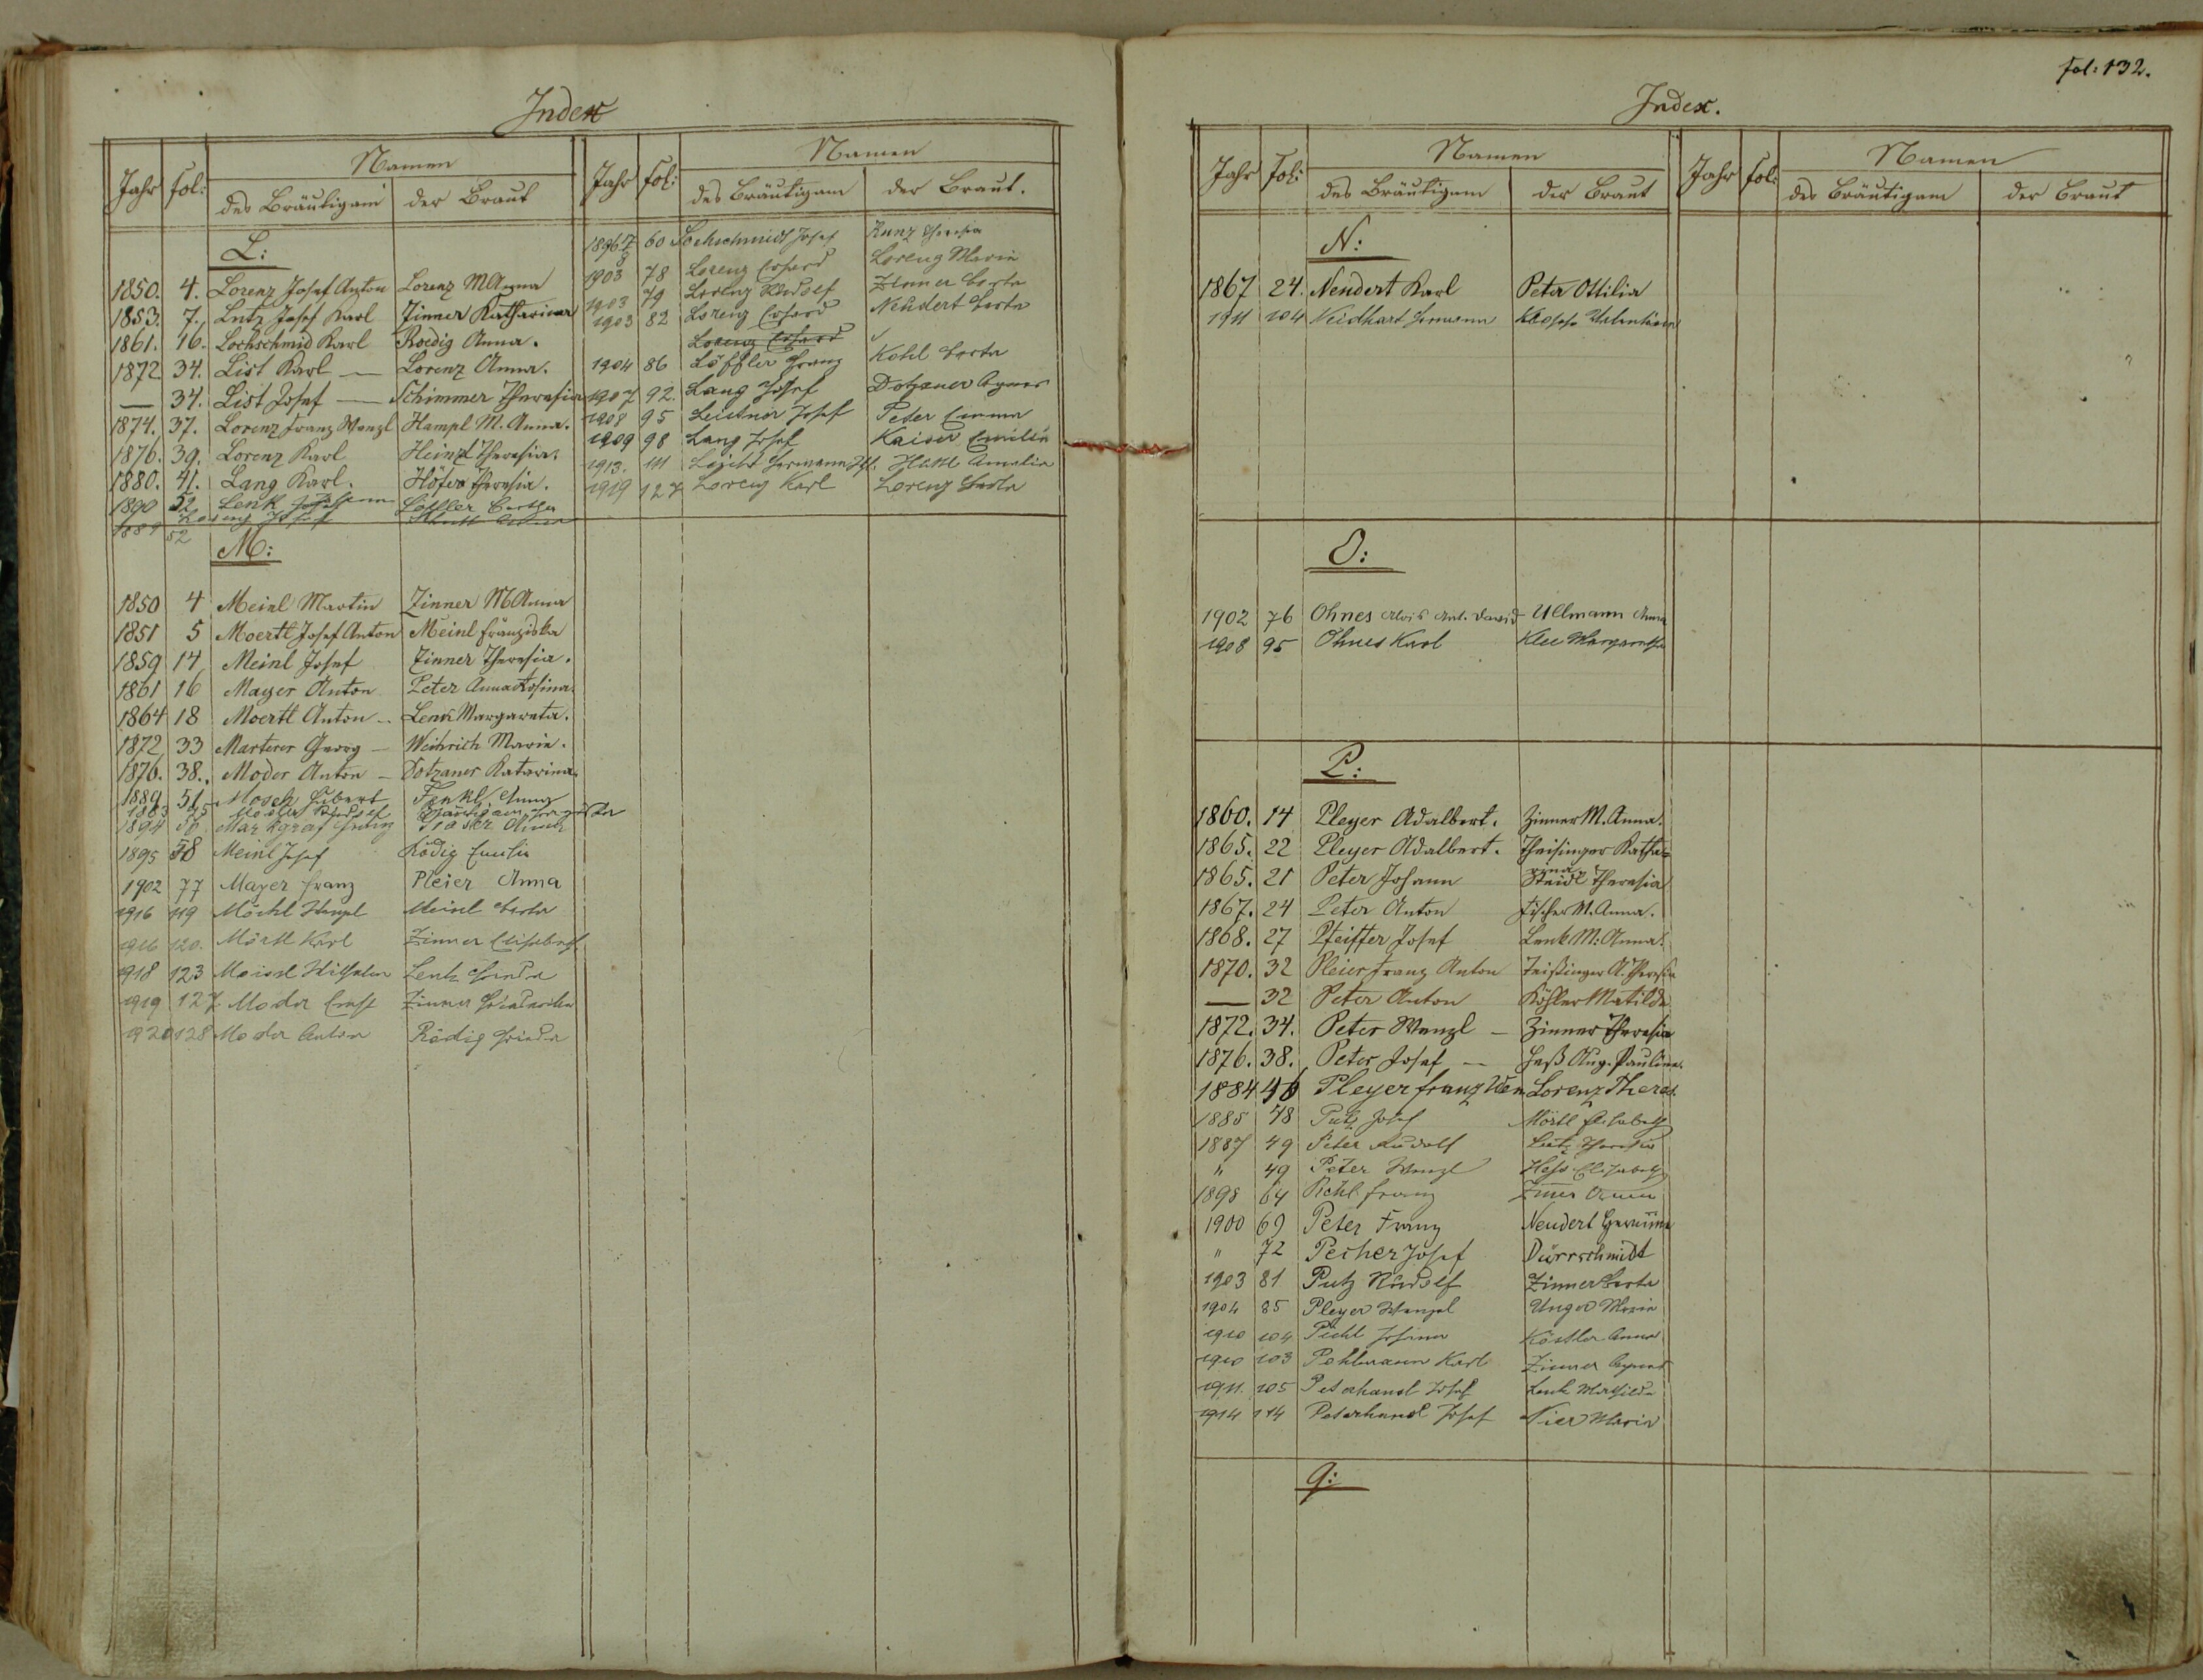 Index
Jahr fol: Namen
des Bräutigam der Braut
L:
1850. 4. Lorenz Josef Anton Lorenz M Anna
1853. 7. Lutz Josef Karl Zinner Katharina
1861. 16. Lochschmid Karl Roedig Anna.
1872. 34. List Karl — Lorenz Anna.
— 34. List Josef — Schimmer Theresia
1874. 37. Lorenz Franz Wenzl Hampl M. Anna.
1876. 39. Lorenz Karl Heinzl Theresia.
1880. 41. Lang Karl. Höfer Theresia.
1890 52 Lenk
1889 52 Lorenz Josef
M:
1850 4 Meinl Martin Zinner M Anna
1851 5 Moertl Josef Anton Meinl Franziska
1859 14 Meinl Josef Zinner Theresia.
1861 16 Mayer Anton Peter Anna Rosina.
1864 18 Moertl Anton – Lenk Margareta.
1872 33 Marterer Georg – Weihrich Marie.
1876. 38. Moder Anton – Dotzauer Katarina.
1889 51 Mosch Hubert Fenkl Anna
1883 Rudolf
1894 Markgraf Franz
1895 58 Meinl Josef Rödig Emilie
1902 77 Mayer Franz Pleier Anna
1916 119 Wenzel Meinl Berta
1916 120. Mörtl Karl Zinner Elisabeth
1918 123 Meissl Wilhelm Lenk Frieda
1919 127 Moder Ernst Zinner
1920 128 Moder Anton Rödig Frieda
Jahr Fol: Namen
des Bräutigam der Braut.
60 Lochschmidt Josef Kunz Theresia
1903 78 Lorenz Erhard Lorenz Marie
1903 79 Lorenz Rudolf Zinner Berta
1903 82 Lorenz Erhard Neudert Berta
Lorenz Erhard
1904 86 Löffler Franz Kohl Berta
1907 92. Lang Josef Dotzauer Agnes
1908 95 Leistner Josef Peter Emma
1909 98 Lang Josef Kaiser Emilie
1913. 111 Hermann Amalia
1919 127 Lorenz Karl Lorenz Berta
fol: 132.
Index.
Jahr Fol: Namen
des Bräutigam der Braut
Jahr fol: Namen
des Bräutigam der Braut
N:
1867 24. Neudert Karl Peter Ottilia
1911 104 Neidhart Hermann
O:
1902 76 Ohnes Alois Ant. David Ullmann Anna
1908 95 Ohnes Karl Klee Margaretha
P:
1860. 14 Pleyer Adalbert. Zinner M. Anna.
1865. 22 Pleyer Adalbert. Theisinger Katha=
rina
1865. 21 Peter Johann Steidl Theresia
1867. 24 Peter Anton Fischer M. Anna.
1868. 27 Pfeiffer Josef Lenk M. Anna.
1870. 32 Pleier Franz Anton Teißinger A. Theresia
— 32 Peter Anton Köhler Matilde
1872. 34. Peter Wenzl – Zinner Theresia
1876. 38. Peter Josef — Heß Aug. Pauline.
1884 46 Pleyer Franz Wen Lorenz Theres.
1885 48 Putz Josef Mörtl Elisabeth
1887 49 Peter Rudolf Lutz Theresia
" 49 Peter Wenzl Hess Elisabeth
1898 64 Pichl Franz
1900 69 Peter Franz Neudert Hermine
" 72 Pecher Josef Dürrschmidt
1903 81 Putz Rudolf Zinner Berta
1904 85 Pleyer Wenzel Unger Marie
1910 104 Pichl Johann Köstler Anna
1910 103 Pohlmann Karl Zinner Agnes
1911. 105 Peterhansl Josef Lenk Mathilde
1914 114 Peterhansl Josef Nier Maria
Q: